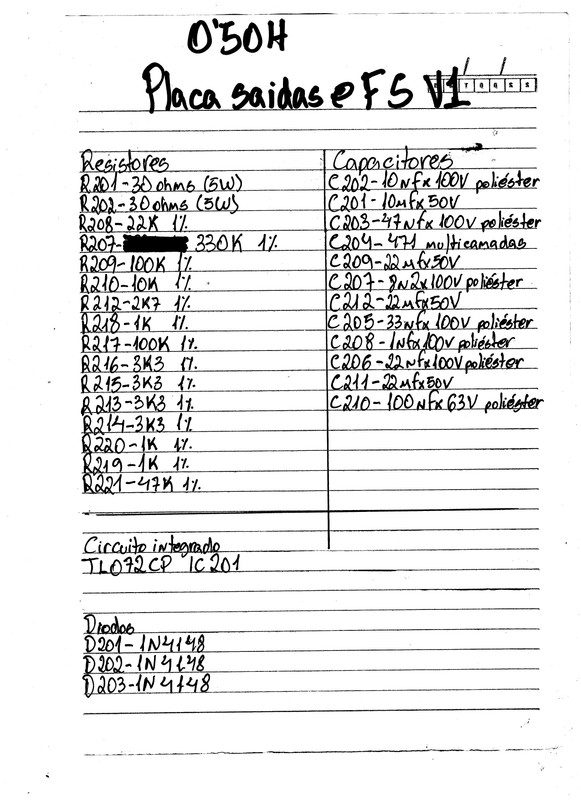 O'50H
Placa saidas e FS V1
Resistores
R201-30 ohms (5W)
R202-30 ohms (5W)
R208-22K 1%
R207- 330K 1%
R209-100K 1%
R210-10K 1%
R212-2K7 1%
R218-1K 1%
R217-100K 1%
R216-3K3 1%
R215-3K3 1%
R213-3K3 1%
R214-3K3 1%
R220-1K 1%
R219-1K 1%
R221-47K 1%
Capacitores
C202-10Nfx100V poliéster
C201-10Mfx50V
C203-47Nfx100V poliéster
C204-471 multicamadas
C209-22Mfx50V
C207-8N2x100V poliéster
C212-22Mfx50V
C205-33Nfx100V poliéster
C208-1Nfx100V poliéster
C206-22Nfx100V poliéster
C211-22Mfx50V
C210-100Nfx63V poliéster
Circuito integrado
TL072CP IC201
Diodos
D201-1N4148
D202-1N4148
D203-1N4148